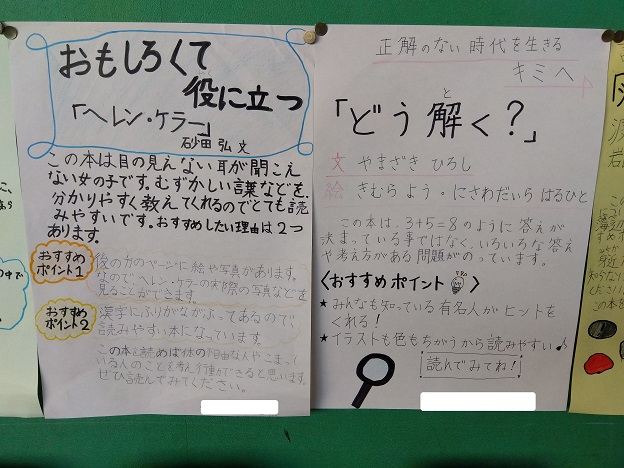 おもしろくて
役に立つ
「ヘレン・ケラー」
砂田 弘 文
この本は目の見えない耳が聞こえ
ない女の子です。むずかしい言葉などを、
分かりやすく教えてくれるのでとても読
みやすいです。おすすめしたい理由は2つ
あります。
おすすめ
ポイント1
後の方のページに絵や写真があります。
なので、ヘレン・ケラーの実際の写真などを
見ることができます。
おすすめ
ポイント2
漢字にふりがながふってあるので、
読みやすい本になっています。
この本を読めば体の不自由な人やこまって
いる人のことを考えす事ができると思います。
ぜひ読んでみてください。
正解のない時代を生きる
キミへ
「どう解く?」
と
文 やまざき ひろし
絵 きむら よう・にさわだいら はるひと
この本は、3+5=8のように答えが
決まっている事ではなく、いろいろな答え
や考え方がある問題がのっています。
〈おすすめポイント〉
★みんなも知っている有名人がヒントを
くれる!
★イラストも色もちがうから読みやすい♪
読んでみてね!